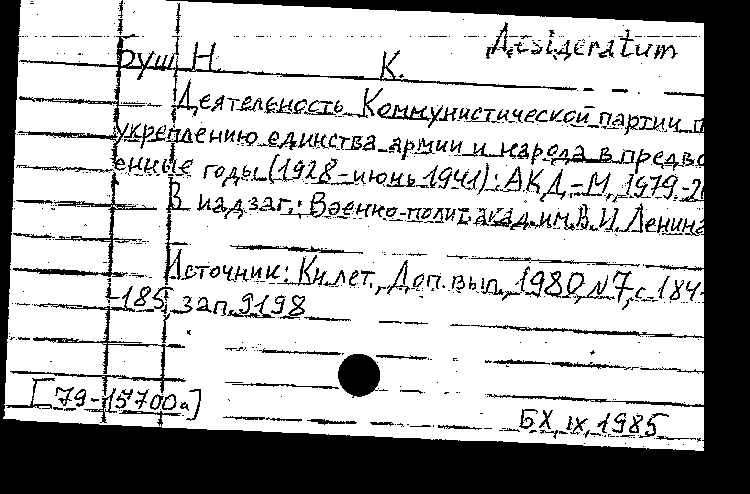 Desideratum
Буш Н. К.
Деятельность Коммунистической партии п
укреплению единства армии и народа в предво
енные годы (1928-июнь 1941): АКД.-М., 1979.-2
В надзаг.: Военно-полит. акад. им. В. И. Ленина
Источник: Кн. лет., Доп. вып., 1980, №7, с. 184-
-185, зап. 9198
[79-15700а]
БХ, IX, 1985